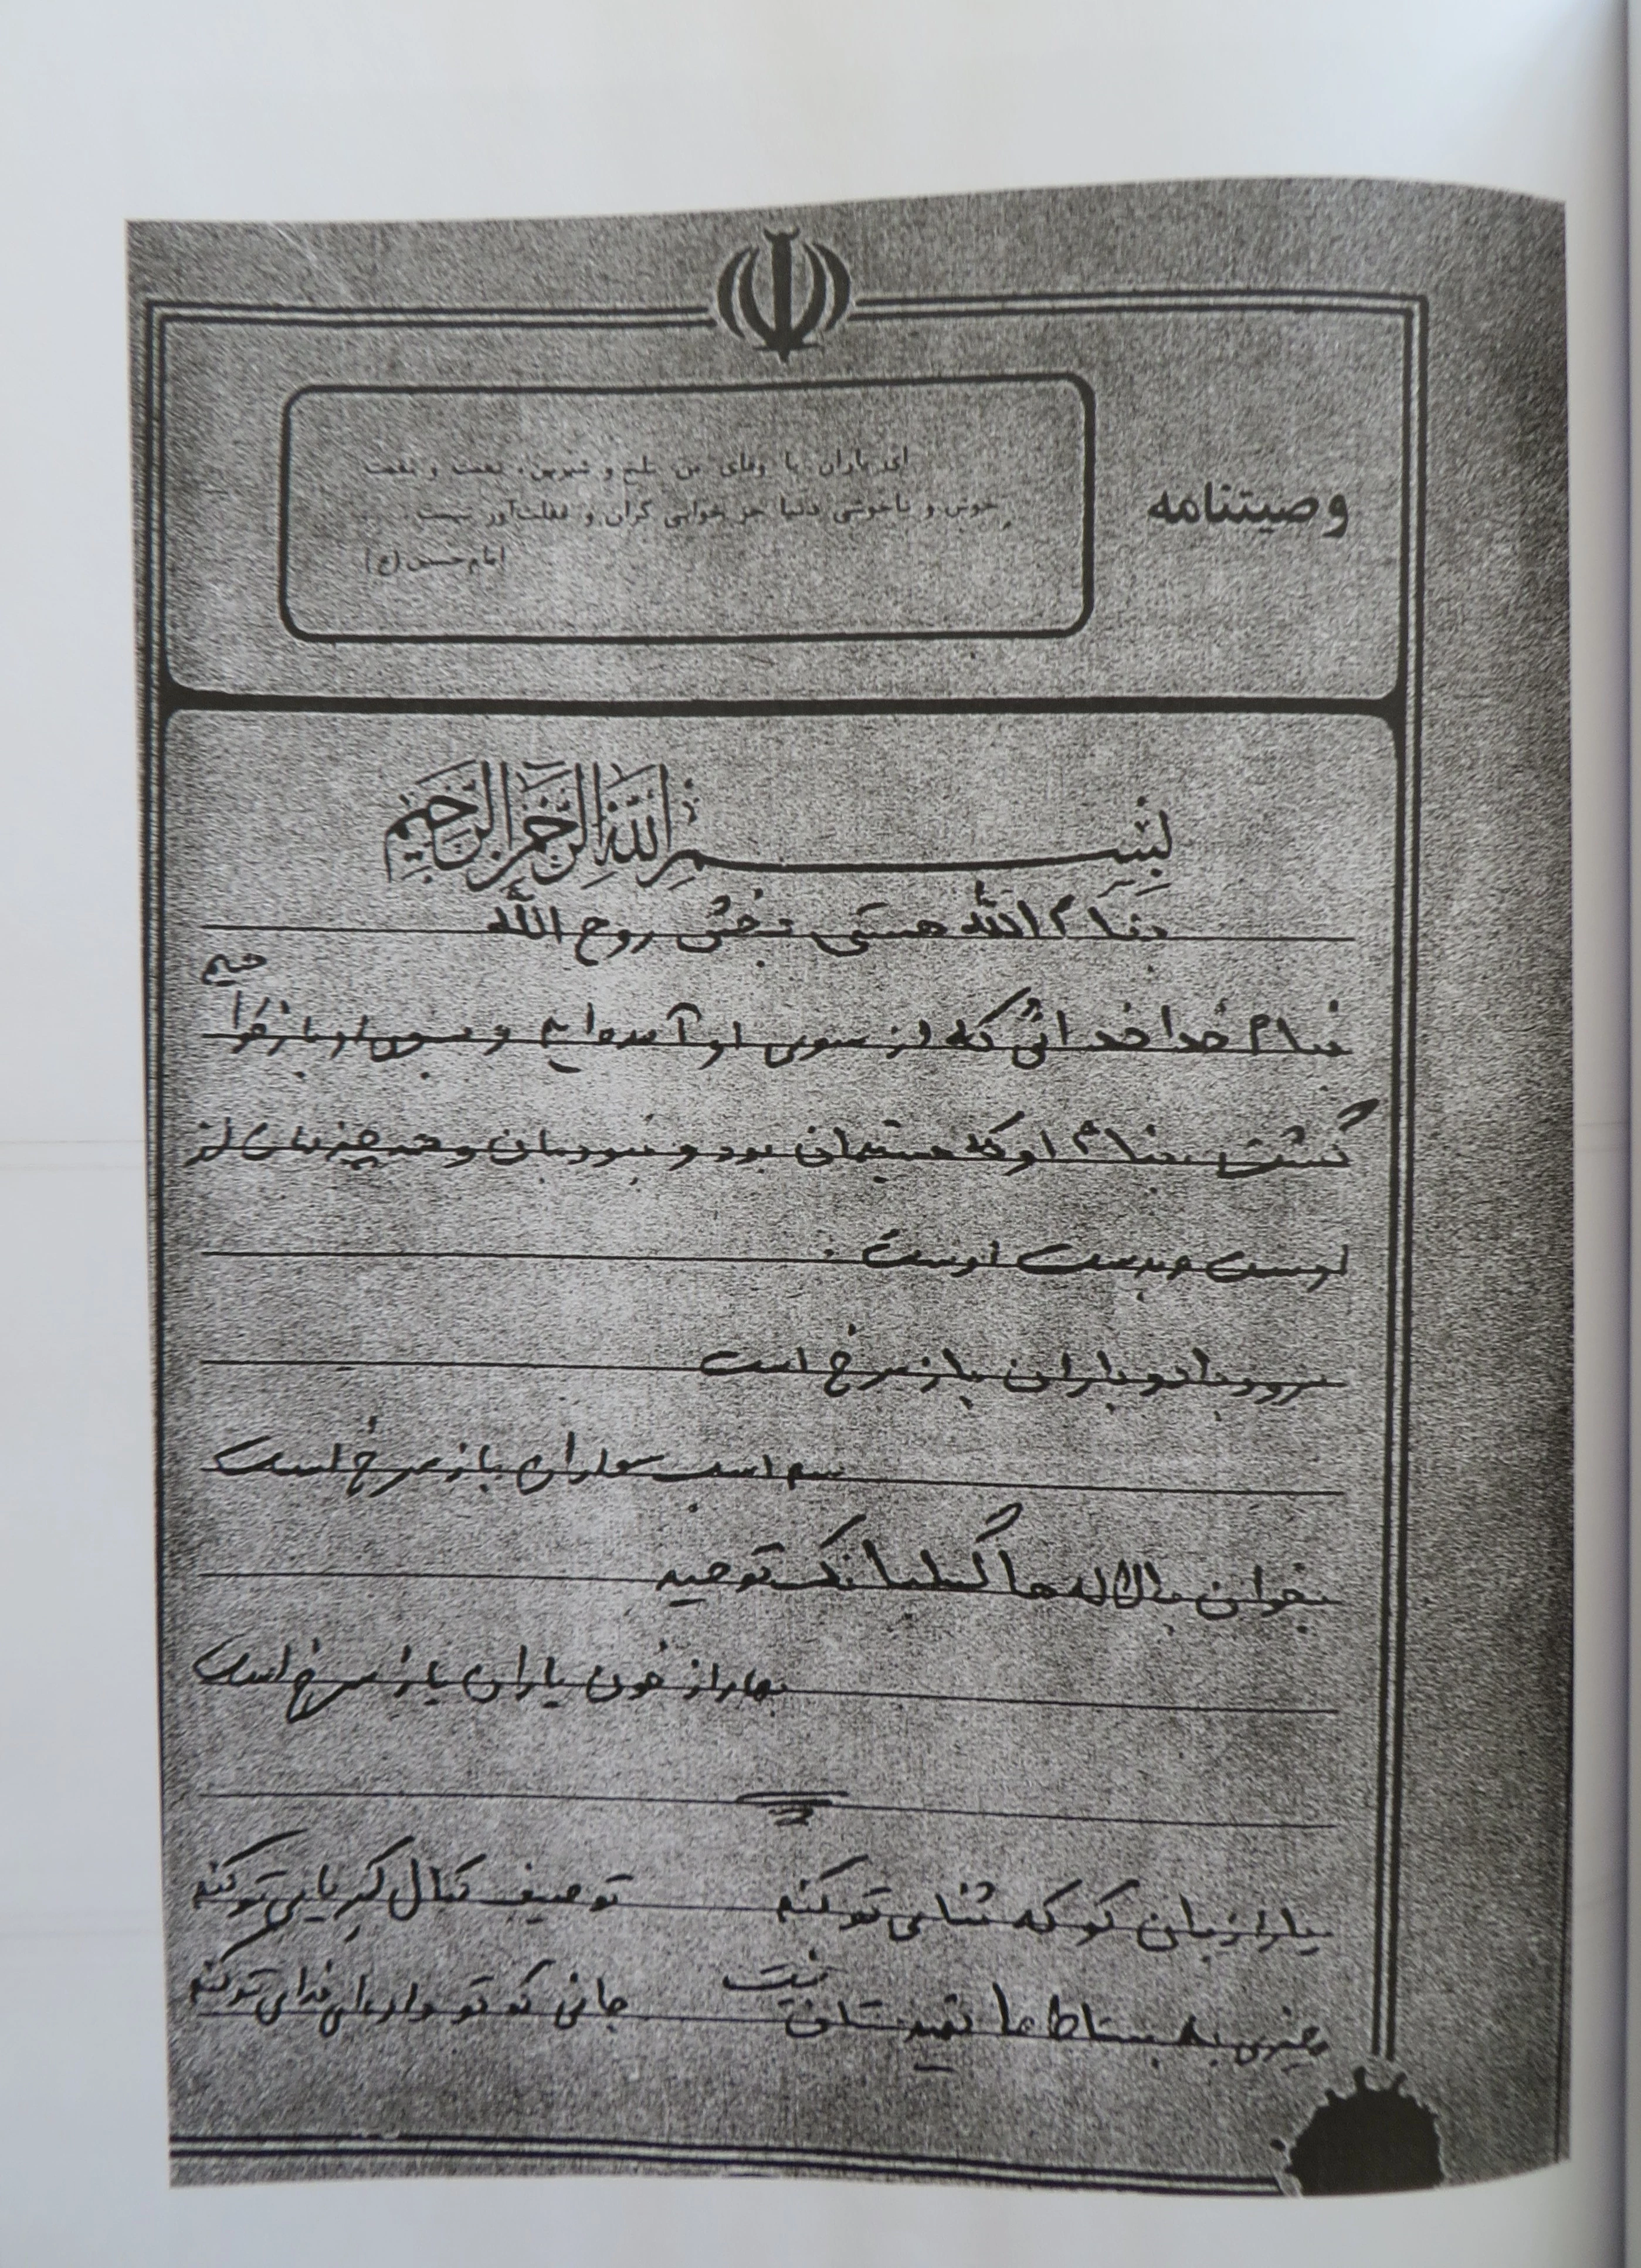 وصیتنامه
ای یاران با وفای من تلخ و شیرین، نعمت و نقمت
خوش و ناخوشی دنیا جز خوابی گران و غفلت‌آور نیست.
امام حسین (ع)
بِسْمِ اللَّهِ الرَّحْمَنِ الرَّحِيمِ
بنام الله هستی بخش روح الله
بنام خدا خدائی که از سوی او آمده‌ایم و بسوی او باز خواهیم
گشت بنام او که هستیمان بود و نبودمان و همه چیزمان از
اوست و بدست اوست.
سرود باد و باران باز سرخ است
سم اسب سواران باز سرخ است
بخوان با لاله ها گلبانگ توحید
بهار از خون یاران باز سرخ است
یا رب زبان کو که ثنای تو کنم توصیف کمال کبریایی تو کنم
چیزی به بساط ما تهیدستان نیست جانی که تو داده‌ای فدای تو کنم